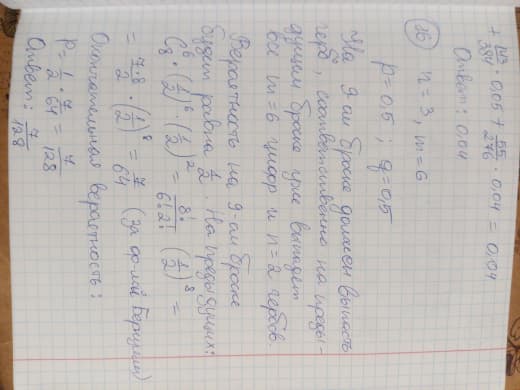 + 143/384 · 0,05 + 55/276 · 0,04 = 0,04
Ответ: 0,04
16 n = 3, m = 6
p = 0,5 ; q = 0,5
На 9-ом броске должен выпасть
герб, соответственно на преды-
дущем броске уже выпадет
все m = 6 цифр и n = 2 гербов.
Вероятность на 9-ом броске
будет равна 1/2. На предыдущих:
C₈⁶ · (1/2)⁶ · (1/2)² = 8!/6!2! (1/2)⁸ =
= 7·8/2 · (1/2)⁸ = 7/64 (за ф-лой Бернулли)
Окончательная вероятность:
P = 1/2 · 7/64 = 7/128
Ответ: 7/128